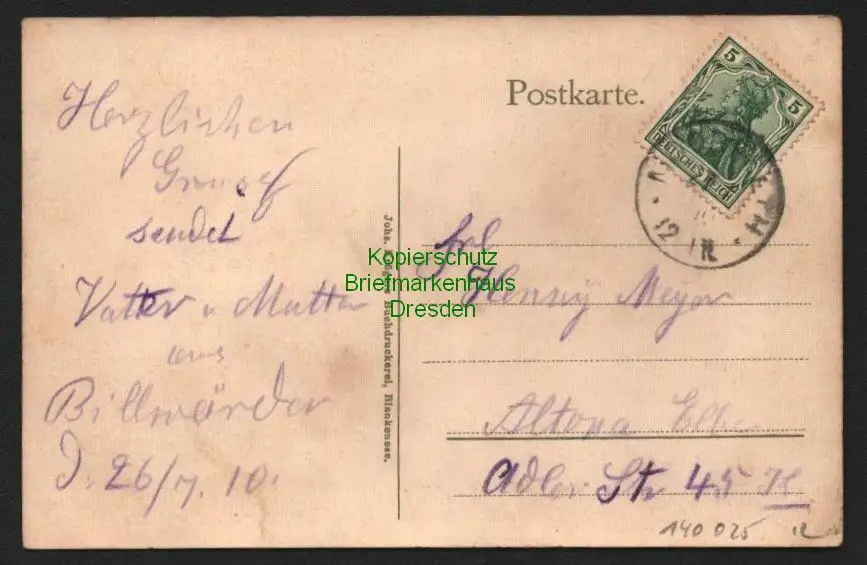 Herzlichen
Gruss
sendet
Vatter u Mutter
aus
Billwärder
d. 26/7. 10.
Postkarte.
5 5
DEUTSCHES REICH
12
Buchdruckerei, Blankenese.
Kopierschutz
Briefmarkenhaus
Dresden
Henry Meyer
Altona Elbe
Adler Str 45 II
140 025